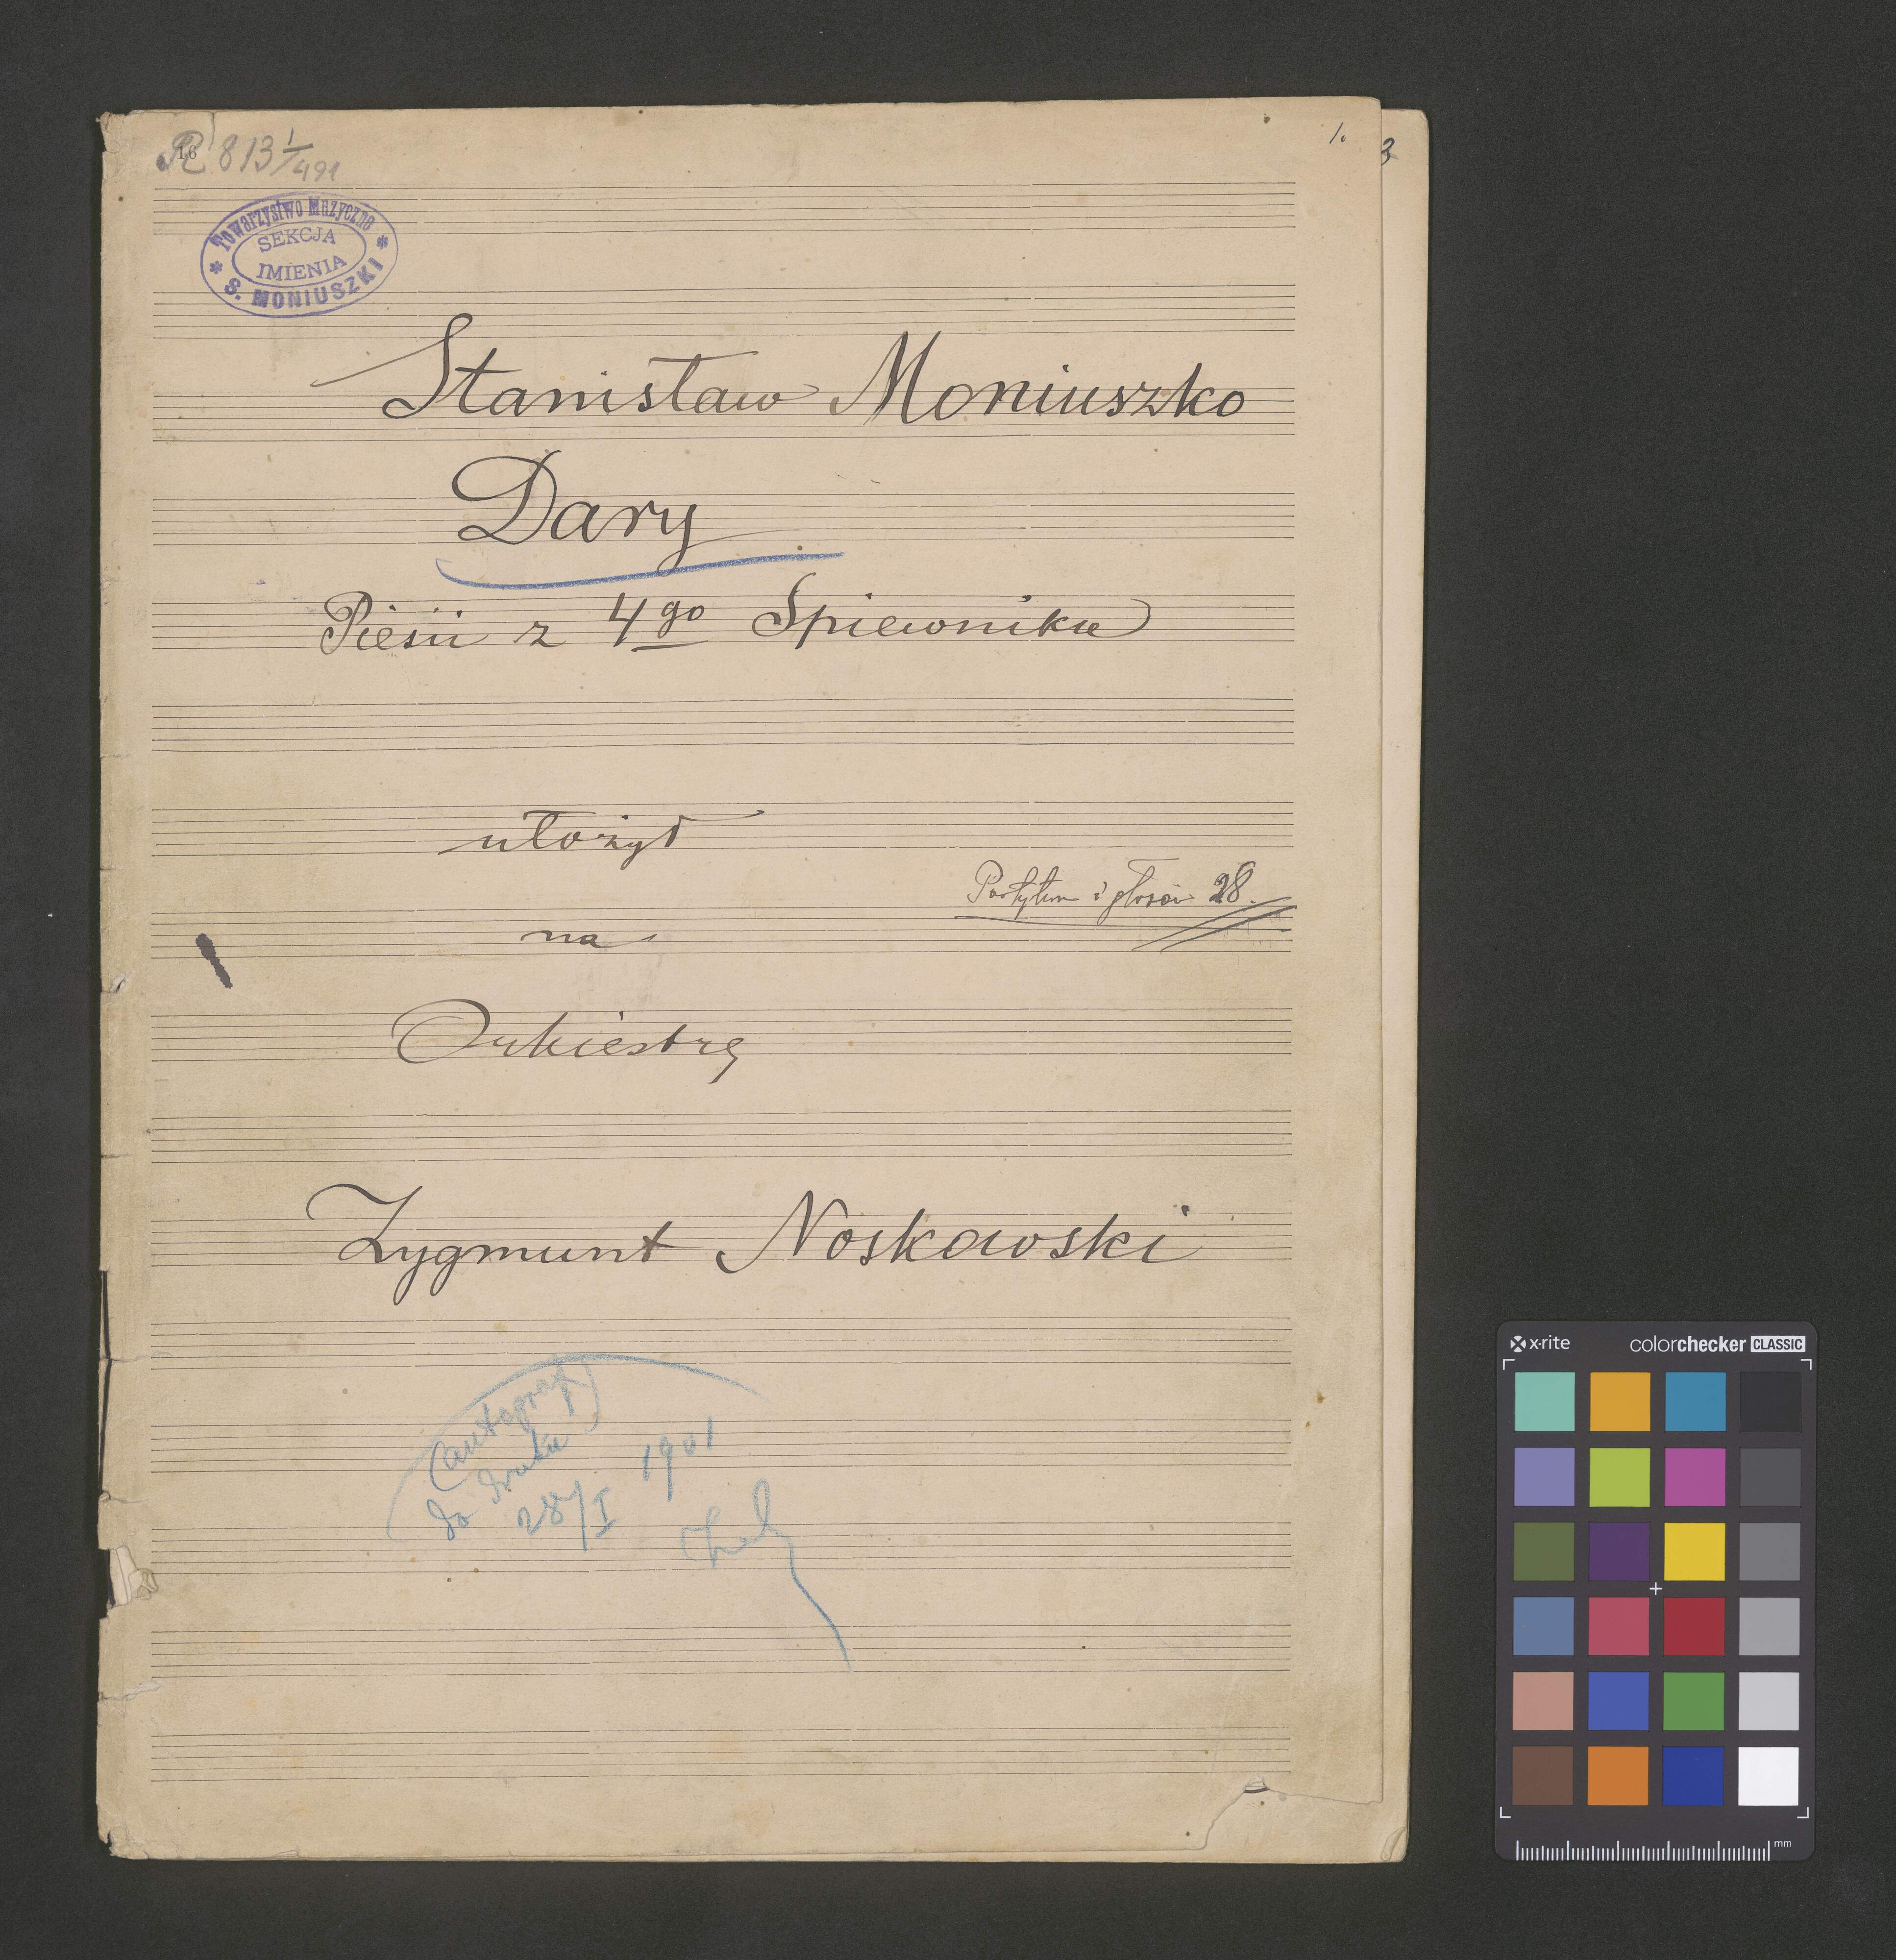 R 813 1/491
16
1.
3
Towarzystwo Muzyczne
SEKCJA
IMIENIA
S. MONIUSZKI
Stanisław Moniuszko
Dary
Pieśń z 4go Śpiewnika
ułożył
Partytura i głosów 28.
na
Orkiestrę
Zygmunt Noskowski
(autograf)
do druku
28/I 1901
x-rite
colorchecker CLASSIC
mm